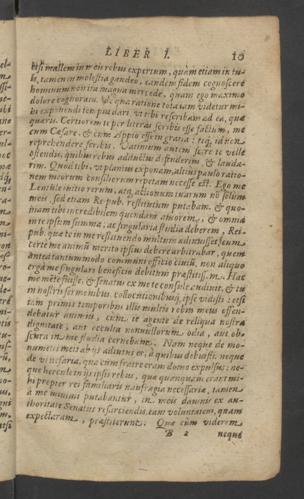 LIBER I. 10
etsi mallem in meis rebus expertum, quàm etiam in tuis,
tamen in molestia gaudeo, eandem fidem cognoscere
hominum non ita magna mercede, quam ego maximo
dolore cognoram. De qua ratione tota iam videtur mihi
exponendi tempus dari, vt tibi rescribam ad ea, quæ
quæris. Certiorem te per literas scribis esse factum, me
cum Cæsare, & cum Appio esse in gratia: teq́; id non
reprehendere scribis. Vatinium autem scire te velle
ostendis, quibus rebus adductus defenderim, & laudarim.
Quod tibi vt planius exponam, altius paulo rationem
meorum consiliorum repetam necesse est. Ego me
Lentule initio rerum, atq; actionum tuarum non solùm
meis, sed etiam Reipub. restitutum putabam: & quoniam
tibi incredibilem quendam amorem, & omnia
in te ipsum summa, ac singularia studia deberem, Reipub.
quæ te in me restituendo multum adiuuisset, eum
certè me animum merito ipsius debere arbitrabar, quem
antea tantummodo communi officio ciuium, non aliquo
erga me singulari beneficio debitum præstitissem. Hac
me mente fuisse, & senatus ex me te consule audiuit, & tu
in nostris sermonibus, collocutionibusq́; ipse vidisti: etsi
iam primis temporibus illis multis rebus meus offendebatur
animus, cùm te agente de reliqua nostra
dignitate, aut occulta nonnullorum odia, aut obscura
in me studia cernebam. Nam neque de monumentis
meis ab ijs adiutus es, à quibus debuisti: neque
de vi nefaria, qua cum fratre eram domo expulsus: neque
hercule in ijs ipsis rebus, quæ quanquam erant mihi
propter rei familiaris naufragia necessariæ, tamen
à me minimi putabantur, in meis damnis ex authoritate
Senatus resarciendis, eam voluntatem, quam
expectaram, præstiterunt. Quæ cùm viderem
B 2 neque